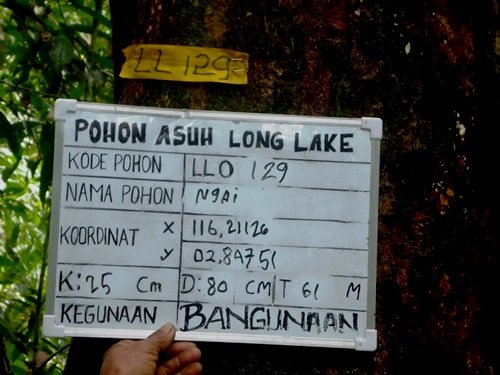 LL 129
POHON ASUH LONG LAKE
KODE POHON LLO 129
NAMA POHON NgAi
KOORDINAT X 116,21126
Y 02,89751
K: 25 Cm D: 80 CM T 61 M
KEGUNAAN BANGUNAAN